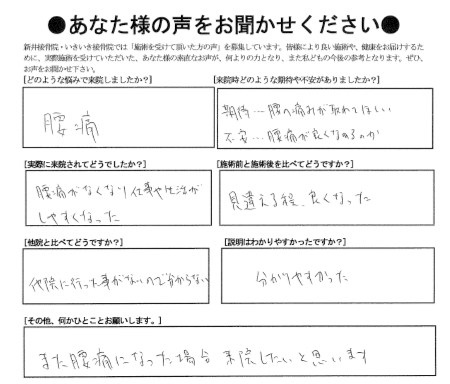 ●あなた様の声をお聞かせください●
新井接骨院・いきいき接骨院では「施術を受けて頂いた方の声」を募集しています。皆様により良い施術や、健康をお届けするた
めに、実際施術を受けていただいた、あなた様の素直なお声が、何よりの力となり、また私どもの今後の参考となります。ぜひ、
お声をお聞かせ下さい。
[どのような悩みで来院しましたか?]
腰痛
[来院時どのような期待や不安がありましたか?]
期待…腰の痛みが取れてほしい
不安…腰痛が良くなるのか
[実際に来院されてどうでしたか?]
腰痛がなくなり仕事や生活が
しやすくなった
[施術前と施術後を比べてどうですか?]
見違える程、良くなった
[他院と比べてどうですか?]
他院に行った事がないので分からない
[説明はわかりやすかったですか?]
分かりやすかった
[その他、何かひとことお願いします。]
また腰痛になった場合来院したいと思います